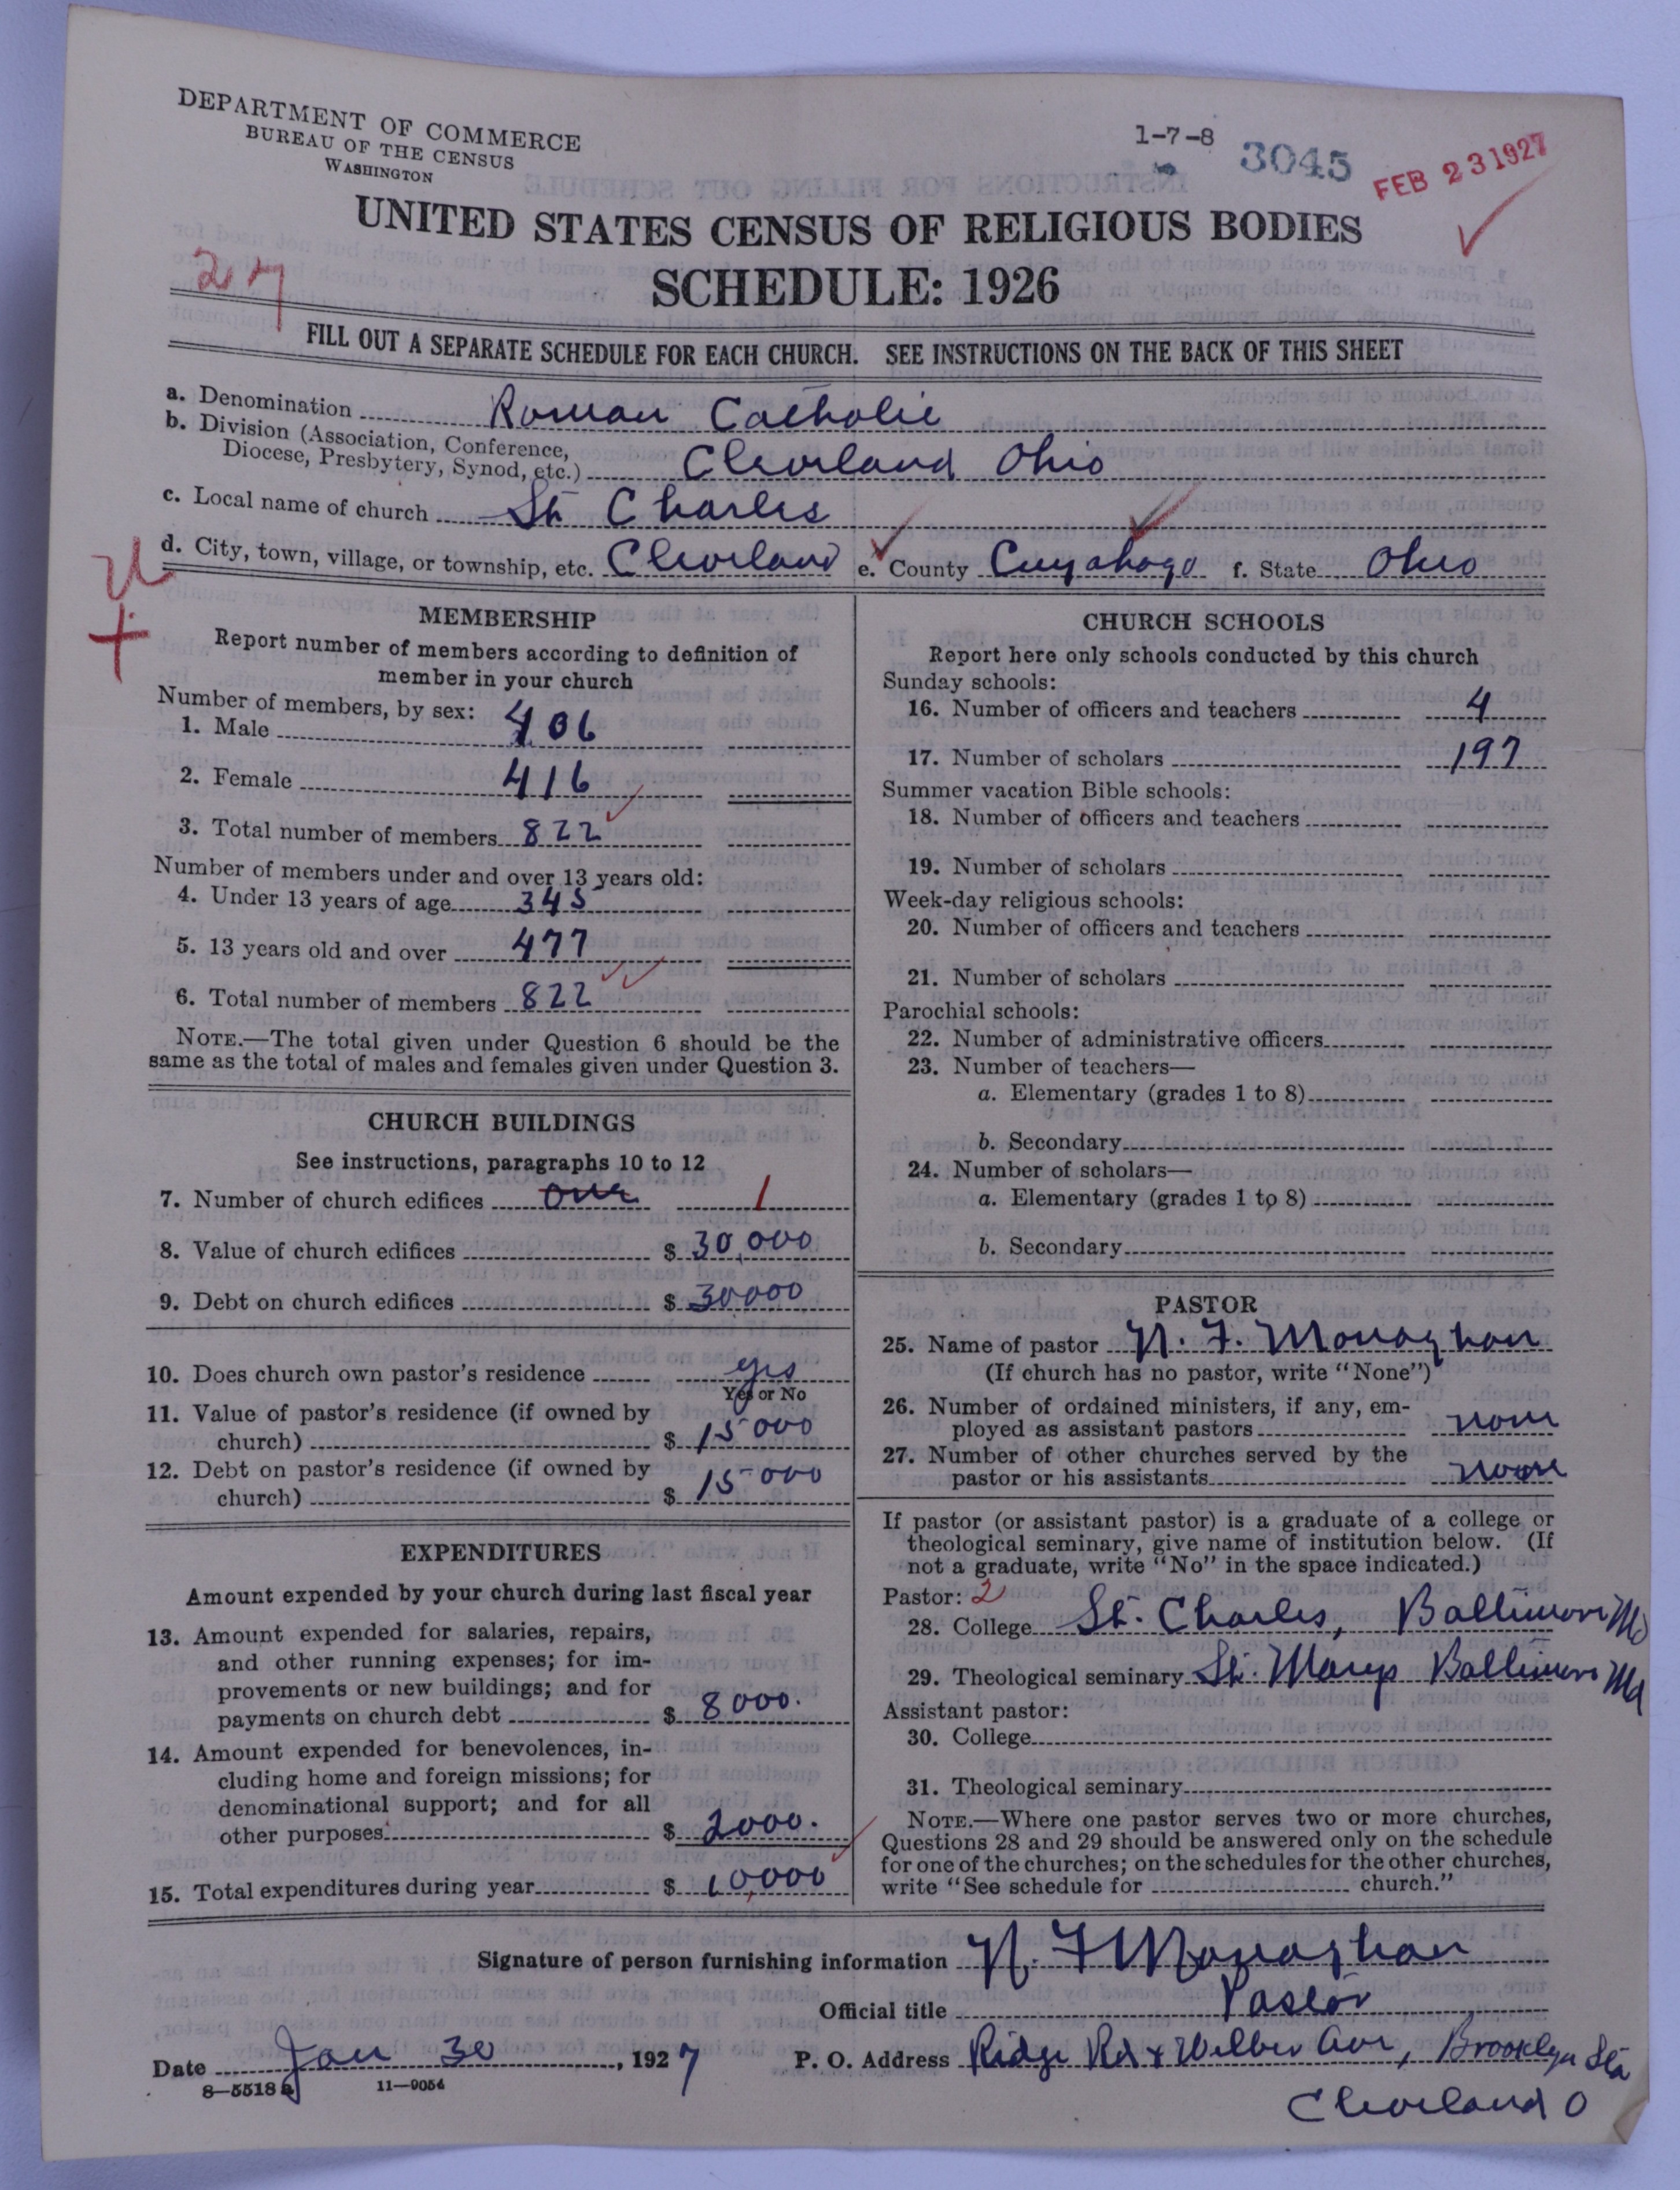 DEPARTMENT OF COMMERCE
BUREAU OF THE CENSUS
WASHINGTON
1-7-8
3045
FEB 23 1927
UNITED STATES CENSUS OF RELIGIOUS BODIES
SCHEDULE: 1926
FILL OUT A SEPARATE SCHEDULE FOR EACH CHURCH. SEE INSTRUCTIONS ON THE BACK OF THIS SHEET
a. Denomination Roman Catholic
b. Division (Association, Conference,
Diocese, Presbytery, Synod, etc.) Cleveland Ohio
c. Local name of church St Charles
d. City, town, village, or township, etc. Cleveland e. County Cuyahoga f. State Ohio
MEMBERSHIP
Report number of members according to definition of
member in your church
Number of members, by sex:
1. Male 406
2. Female 416
3. Total number of members 822
Number of members under and over 13 years old:
4. Under 13 years of age 345
5. 13 years old and over 477
6. Total number of members 822
NOTE.—The total given under Question 6 should be the
same as the total of males and females given under Question 3.
CHURCH BUILDINGS
See instructions, paragraphs 10 to 12
7. Number of church edifices one 1
8. Value of church edifices $ 30,000
9. Debt on church edifices $ 30000
10. Does church own pastor's residence yes
Yes or No
11. Value of pastor's residence (if owned by
church) $ 15000
12. Debt on pastor's residence (if owned by
church) $ 15000
EXPENDITURES
Amount expended by your church during last fiscal year
13. Amount expended for salaries, repairs,
and other running expenses; for im-
provements or new buildings; and for
payments on church debt $ 8000.
14. Amount expended for benevolences, in-
cluding home and foreign missions; for
denominational support; and for all
other purposes $ 2000.
15. Total expenditures during year $ 10,000
CHURCH SCHOOLS
Report here only schools conducted by this church
Sunday schools:
16. Number of officers and teachers 4
17. Number of scholars 197
Summer vacation Bible schools:
18. Number of officers and teachers
19. Number of scholars
Week-day religious schools:
20. Number of officers and teachers
21. Number of scholars
Parochial schools:
22. Number of administrative officers
23. Number of teachers—
a. Elementary (grades 1 to 8)
b. Secondary
24. Number of scholars—
a. Elementary (grades 1 to 8)
b. Secondary
PASTOR
25. Name of pastor N. F. Monaghan
(If church has no pastor, write "None")
26. Number of ordained ministers, if any, em-
ployed as assistant pastors none
27. Number of other churches served by the
pastor or his assistants none
If pastor (or assistant pastor) is a graduate of a college or
theological seminary, give name of institution below. (If
not a graduate, write "No" in the space indicated.)
Pastor: 2
28. College St. Charles, Baltimore Md
29. Theological seminary St. Marys Baltimore Md
Assistant pastor:
30. College
31. Theological seminary
NOTE.—Where one pastor serves two or more churches,
Questions 28 and 29 should be answered only on the schedule
for one of the churches; on the schedules for the other churches,
write "See schedule for church."
Signature of person furnishing information N. F. Monaghan
Official title Pastor
Date Jan 30, 1927 P. O. Address Ridge Rd & Wilber Ave, Brooklyn Sta
Cleveland O
8—5518 a 11—9054